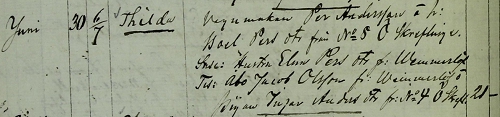 Juni 30 6/7 Thilda Vagnmakaren Per Andersson o h:
Boel Pers dtr från No 5 Ö Skrefling.
Susc: Hustru Elsa Pers dtr fr: Wemmerlöf
Tes: Åbo Jacob Olsson fr: Weimmerlöf o
Pigan Inger Anders dtr fr: No 4 Ö Skref. 28 —